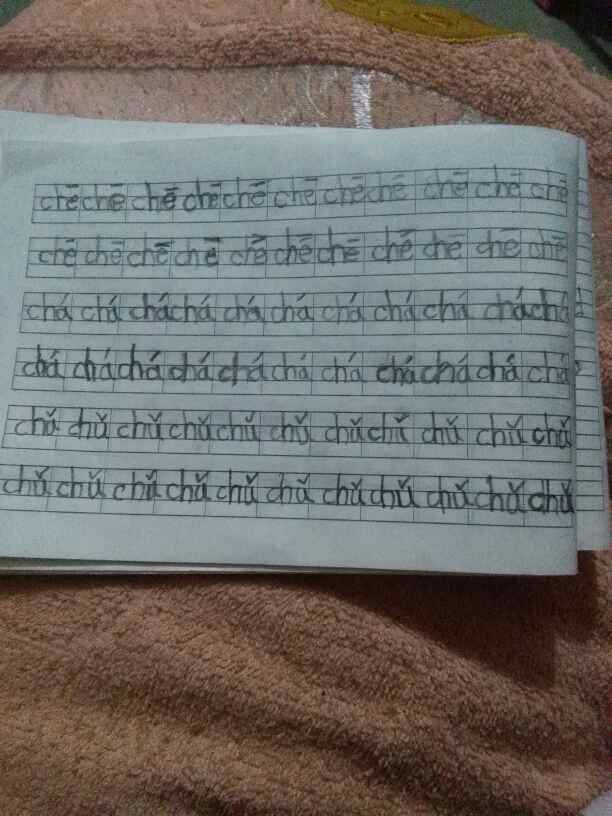 chē chē chē chē chē chē chē chē chē chē chē
chē chē chē chē chē chē chē chē chē chē chē
chá chá chá chá chá chá chá chá chá chá chá
chá chá chá chá chá chá chá chá chá chá chá
chǔ chǔ chǔ chǔ chǔ chǔ chǔ chǔ chǔ chǔ chǔ
chǔ chǔ chǔ chǔ chǔ chǔ chǔ chǔ chǔ chǔ chǔ